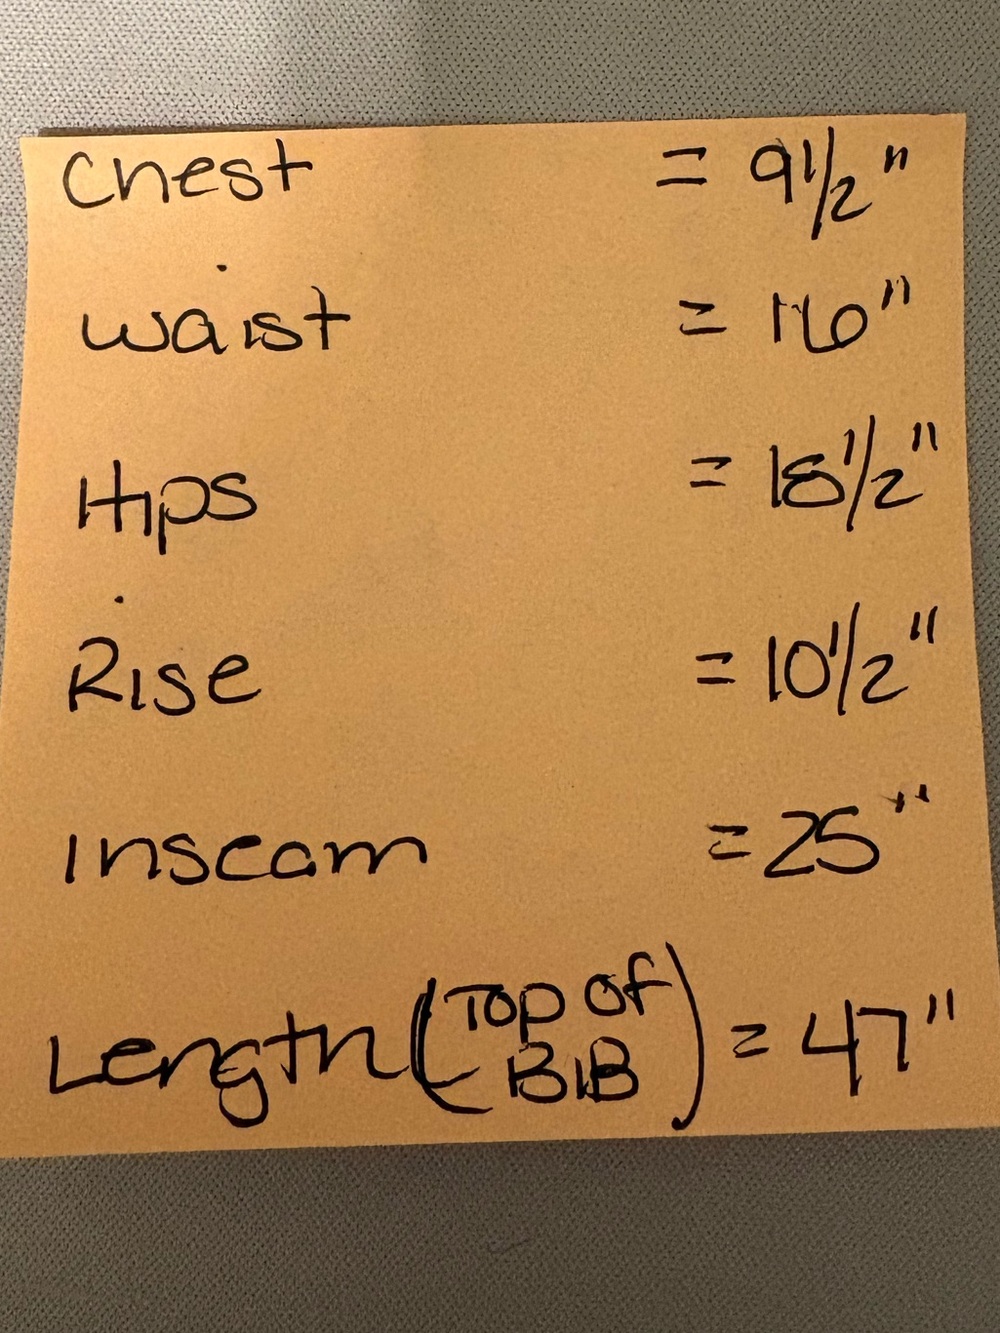 Chest = 9 1/2"
Waist = 16"
Hips = 18 1/2"
Rise = 10 1/2"
Inseam = 25"
Length (Top of BIB) = 47"